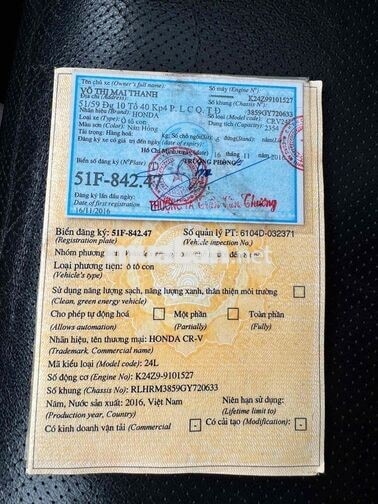 Tên chủ xe (Owner's full name):
VÕ THỊ MAI THANH
Địa chỉ (Address):
51/59 Đg 10 Tổ 40 Kp4 P. L C Q. T.Đ
Nhãn hiệu (Brand): HONDA
Loại xe (Type): Ô tô con
Màu sơn (Color): Nâu Hồng
Tải trọng: Hàng hoá:
Số máy (Engine N°):
K24Z99101527
Số khung (Chassis N°):
3859GY720633
Số loại (Model code): CRV24L
Dung tích (Capacity): 2354
Đăng ký xe có giá trị đến ngày (date of expiry)
Hồ Chí Minh, ngày (date) 16 tháng 11 năm 2016
Biển số đăng ký (N° Plate)
TRƯỞNG PHÒNG
51F-842.47
Đăng ký lần đầu ngày
Date of first registration
16/11/2016
Biển đăng ký: 51F-842.47
(Registration plate)
Số quản lý PT: 6104D-032371
(Vehicle inspection No.)
Nhóm phương
Loại phương tiện: ô tô con
(Vehicle's type)
Sử dụng năng lượng sạch, năng lượng xanh, thân thiện môi trường
(Clean, green energy vehicle)
Cho phép tự động hoá Một phần Toàn phần
(Allows automation) (Partially) (Fully)
Nhãn hiệu, tên thương mại: HONDA CR-V
(Trademark, Commercial name)
Mã kiểu loại (Model code): 24L
Số động cơ (Engine No): K24Z9-9101527
Số khung (Chassis No): RLHRM3859GY720633
Năm, Nước sản xuất: 2016, Việt Nam
(Production year, Country)
Niên hạn sử dụng:
(Lifetime limit to)
Có kinh doanh vận tải (Commercial -
Có cải tạo (Modification): -